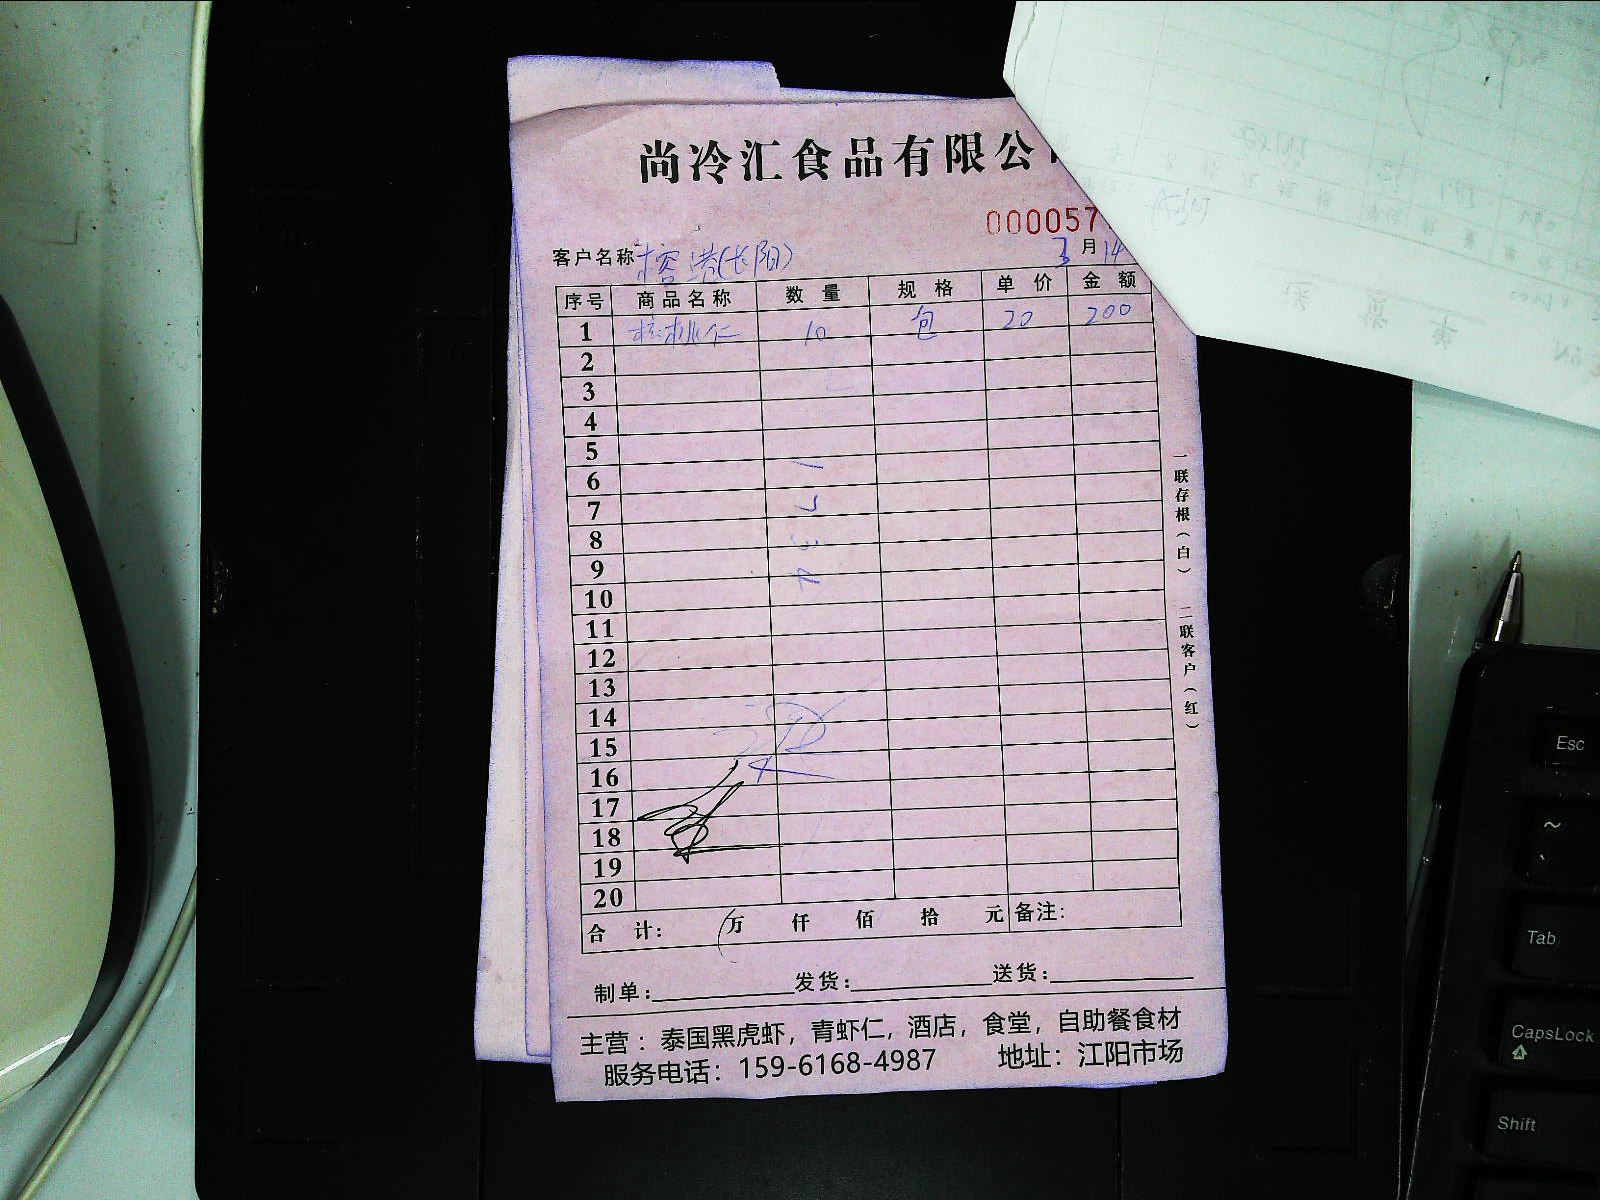 尚冷汇食品有限公
000057
客户名称 榕港(长阳)
3月14
序号 商品名称 数量 规格 单价 金额
1 核桃仁 10 包 20 200
2
3
4
5
6
7
8
9
10
11
12
13
14
15
16
17
18
19
20
合计： 万 仟 佰 拾 元 备注：
制单： 发货： 送货：
主营：泰国黑虎虾，青虾仁，酒店，食堂，自助餐食材
服务电话：159-6168-4987 地址：江阳市场
一联存根（白） 二联客户（红）
Esc
~
Tab
CapsLock
Shift